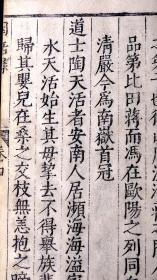 品第比日蔣而馮在歐陽之列同
清嚴今為南嶽首冠
道士陶天活者安南人居瀕海海溢
水天活始生其母挈去不得舉族
歸其嬰兒在桑之交枝無恙抱之
卷四